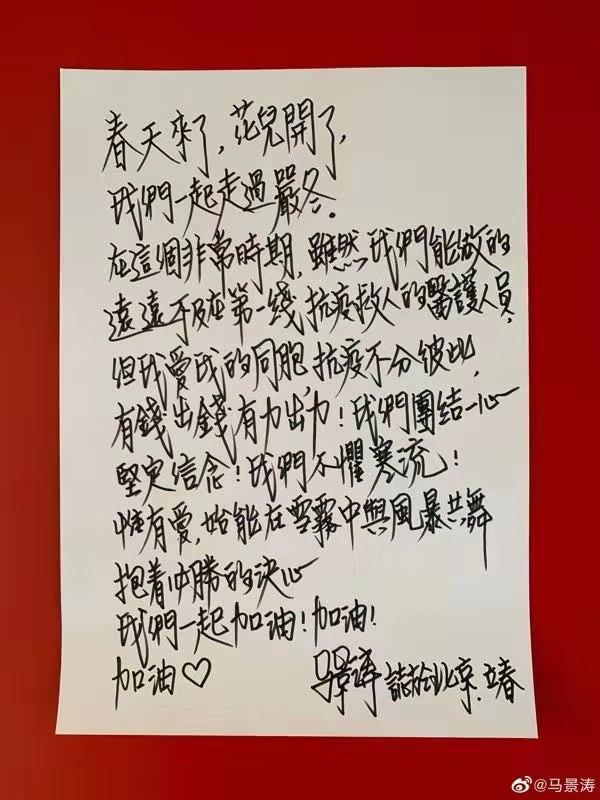 春天來了，花兒開了，
我們一起走過嚴冬．
在這個非常時期，雖然我們能做的
遠遠不及在第一綫抗疫救人的醫護人員，
但我愛我的同胞，抗疫不分彼此，
有錢出錢有力出力！我們團结一心
堅定信念！我們不懼寒流！
惟有愛，始能在雪霧中與風暴共舞
抱着必勝的決心
我們一起加油！加油！
加油♡ 马景涛 誌於北京．立春
@马景涛